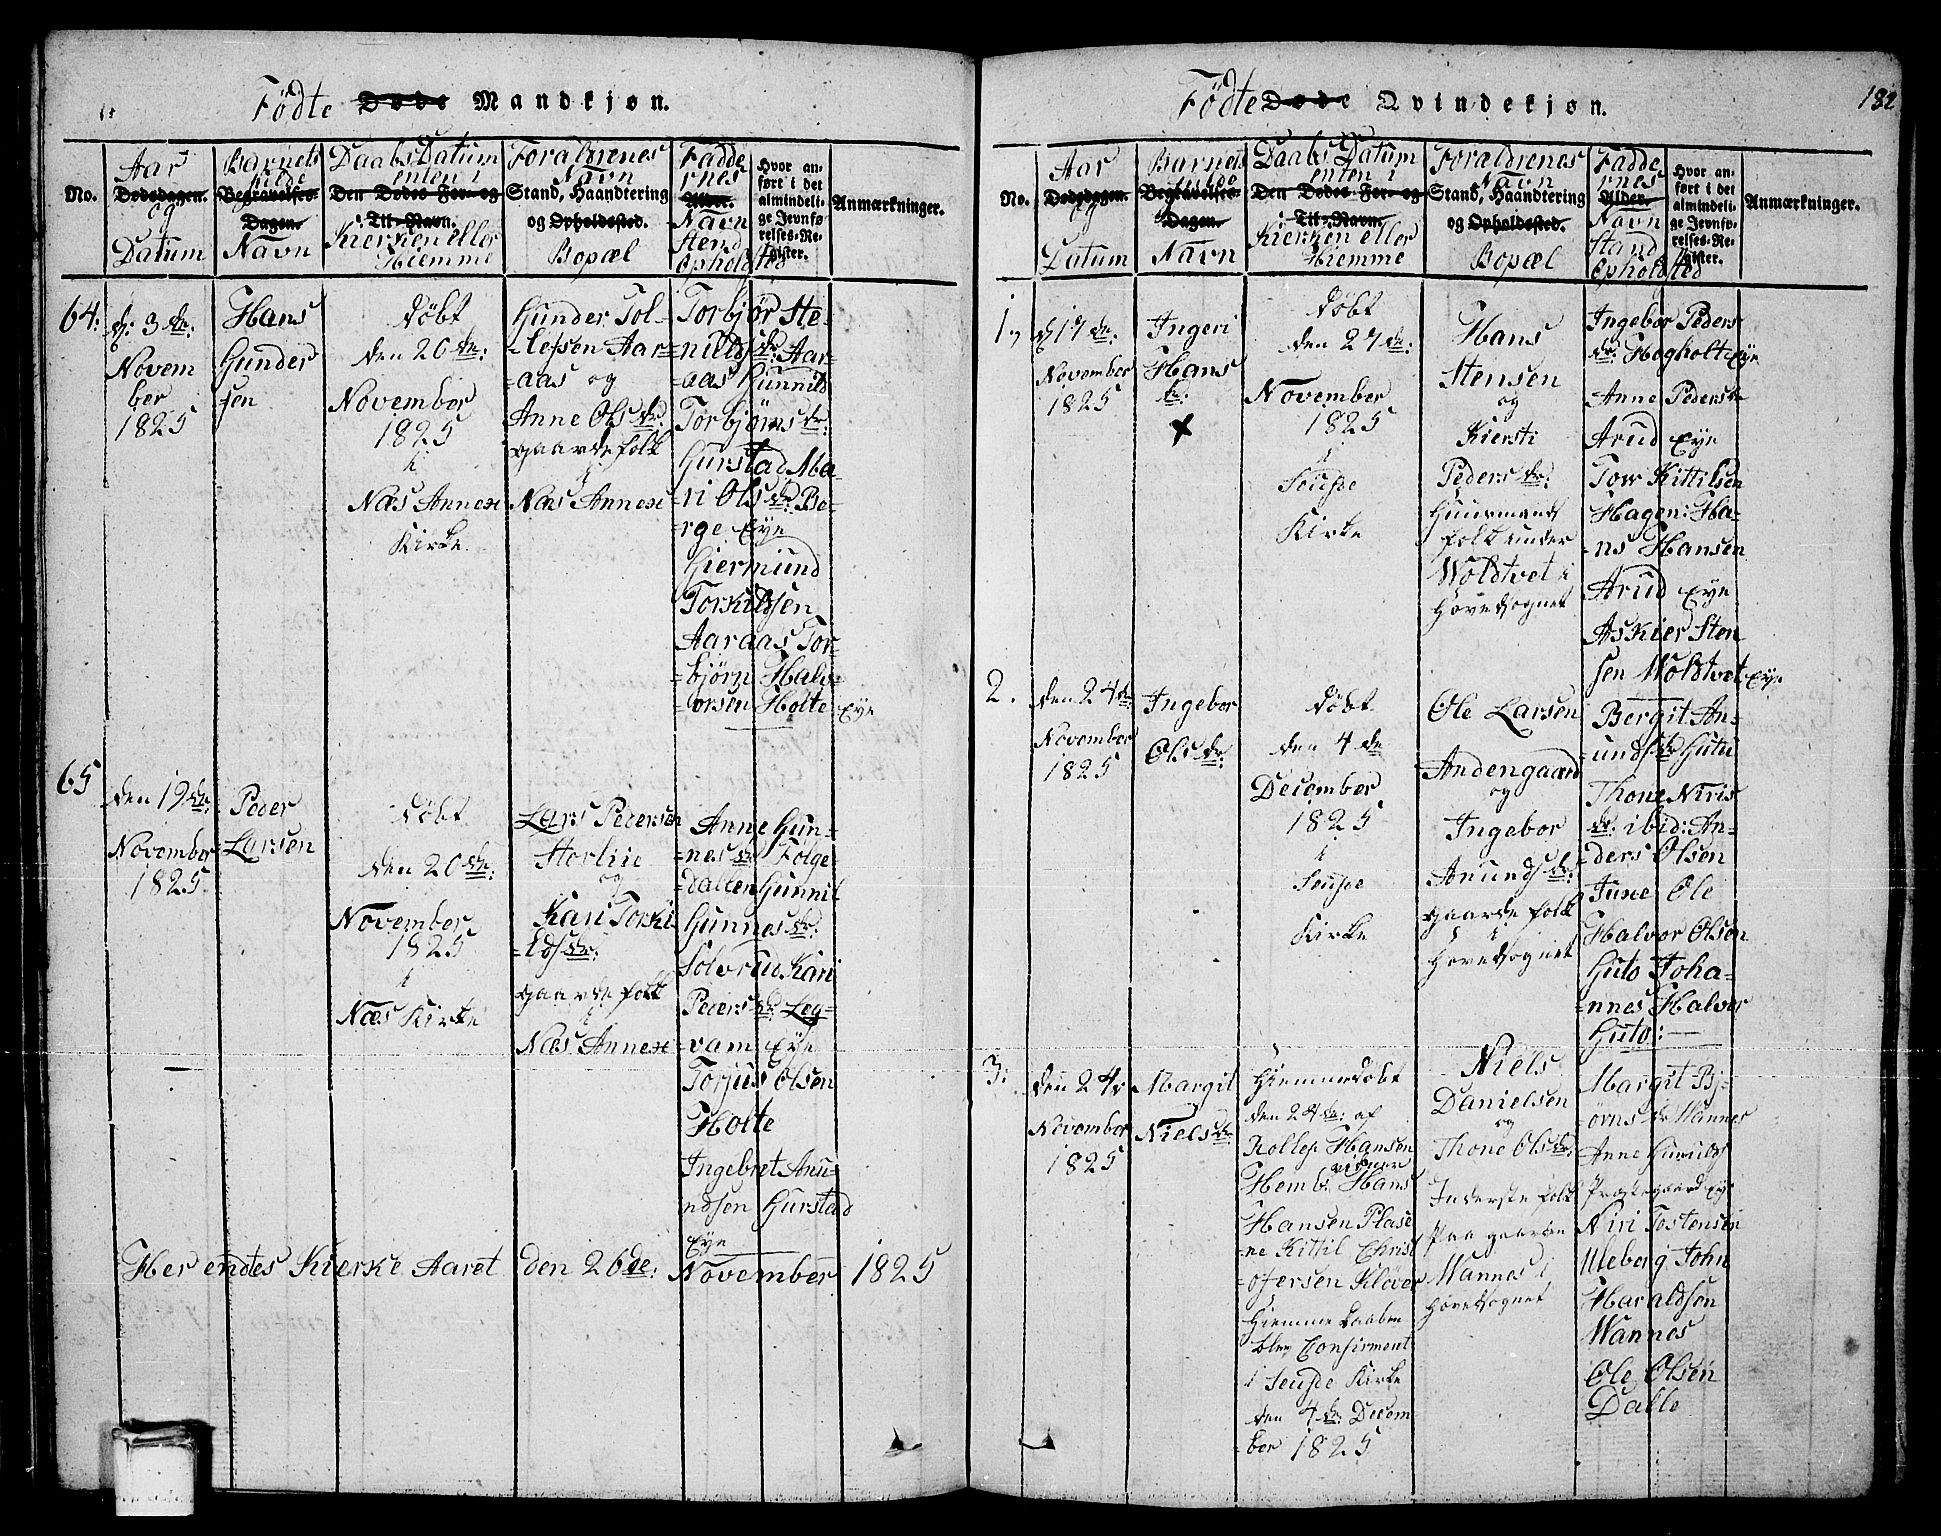 Födte Døde Mandkjøn.
No.
Aar
Dødsdagen.
og
Datum
Barnets
fulde
Begravelses-
Dagen.
Navn
Daabs Datum
enten i
Den Dødes For- og
Til-Navn.
Kierken eller
Hiemme
Forældrenes
Navn
Stand, Haandtering
og Opholdssted.
Bopæl
Fadde
rnes
Alder.
Navn
Stand
Opholdsted
Hvor an-
ført i det
almindeli-
ge Jevnfø-
relses-Re-
gister.
Anmærkninger.
64:
d: 3 de:
Novem
ber
1825
Hans
Gunder
sen
döbt
den 20 de:
November
1825
i
Næs Annex
Kirke.
Gunder Tol-
-lefsen Aar-
=aas og
Anne Ols dr:
gaardefolk
i
Næs Annex
Torbjör Ste-
=nilds dr: Aar-
=aas Gunnild
Torbjörns dr:
Gurstad Ma-
=ri Ols dr: Be-
=rge Eye
Giermund
Torkildsen
Aaraas Tor-
=björn Halv-
=orsen Holte Eye
65
den 19 de:
November
1825.
Peder
Larsen
döbt
den 20 de:
November
1825
i
Næs Kirke
Lars Pedersen
Storlie
og
Kari Torki
=lds dr:
gaardefolk
i
Næs Annex
Anne Gun-
=nes dr Fölge
=dallen Gunnil
Gunnes dr:
Solvrud Kari
Peders dr: Leg-
=vam Eye
Torjus Olsen
Holte
Ingebret Anu-
=ndsen Gurstad
Eye
Her endtes Kierke Aaret den 26 de: November 1825
Födte Døde Qvindekjøn.
182
No.
Aar
Dødsdagen.
og
Datum
Barnets
fulde
Begravelses-
Dagen.
Navn
Daabs Datum
enten i
Den Dødes For- og
Til-Navn.
Kierken eller
Hiemme
Forældrenes
Navn
Stand, Haandtering
og Opholdssted.
Bopæl
Fadde
rnes
Alder.
Navn
Stand
Opholdsted
Hvor an-
ført i det
almindeli-
ge Jevnfø-
relses-Re-
gister.
Anmærkninger.
1.
d 17 de:
November
1825
Ingeri
Hans
dr:
döbt
den 27 de:
November
1825
i
Souse
Kirke
Hans
Stensen
og
Kiersti
Peders dr:
Huusmands
folk under
Woldtvet i
Hovedsognet
Ingebor Peders
dr: Hogholt Eye
Anne Peders dr
Arud Eye
Tow Kittilsen
Hagen: Ha-
=ns Hansen
Arud Eye
Askier Sten
sen Woldtvet Eye
2.
den 24 de
November
1825
Ingebor
Ols dr:
döbt
den 4 de
December
1825
i
Souse
Kirke
Ole Larsen
Andengaard
og
Ingebor
Anunds dr:
gaardefolk
i
Hovedsognet
Bergit An-
unds dr Gutu
Thone Niris
dr: ibid: An-
=ders Olsen
Tune Ole
Halvor Olsen
Guto Joha-
=nnes Halvor
Guto:
3:
den 24
November
1825
Margit
Niels dr:
Hiemmedöbt
den 24 de: af
Rollef Hansen
Hemb. Hans
Hansen Plase
=ne Kittil Christ
=ofersen Klöver
Hiemme Daaben
blev Confirment
i Souse Kirke
den 4 de: Decem
=ber 1825
Niels
Danielsen
og
Thone Ols dr:
Inderste folk
Paa gaarden
Wannes i
Hovedsognet
Margit Bj-
örns dr Wannes
Anne
Præstegaard Eye
Niri Tostensen
Uleberg John
Haraldsen
Wannes
Ole Olsen
Dalle